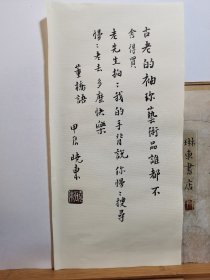 古老的袖珍藝術品誰都不
舍得買
老先生拍〻我的手背說你慢〻搜尋
慢〻老去多麼快樂
董橋語
甲辰 曉東
東書店